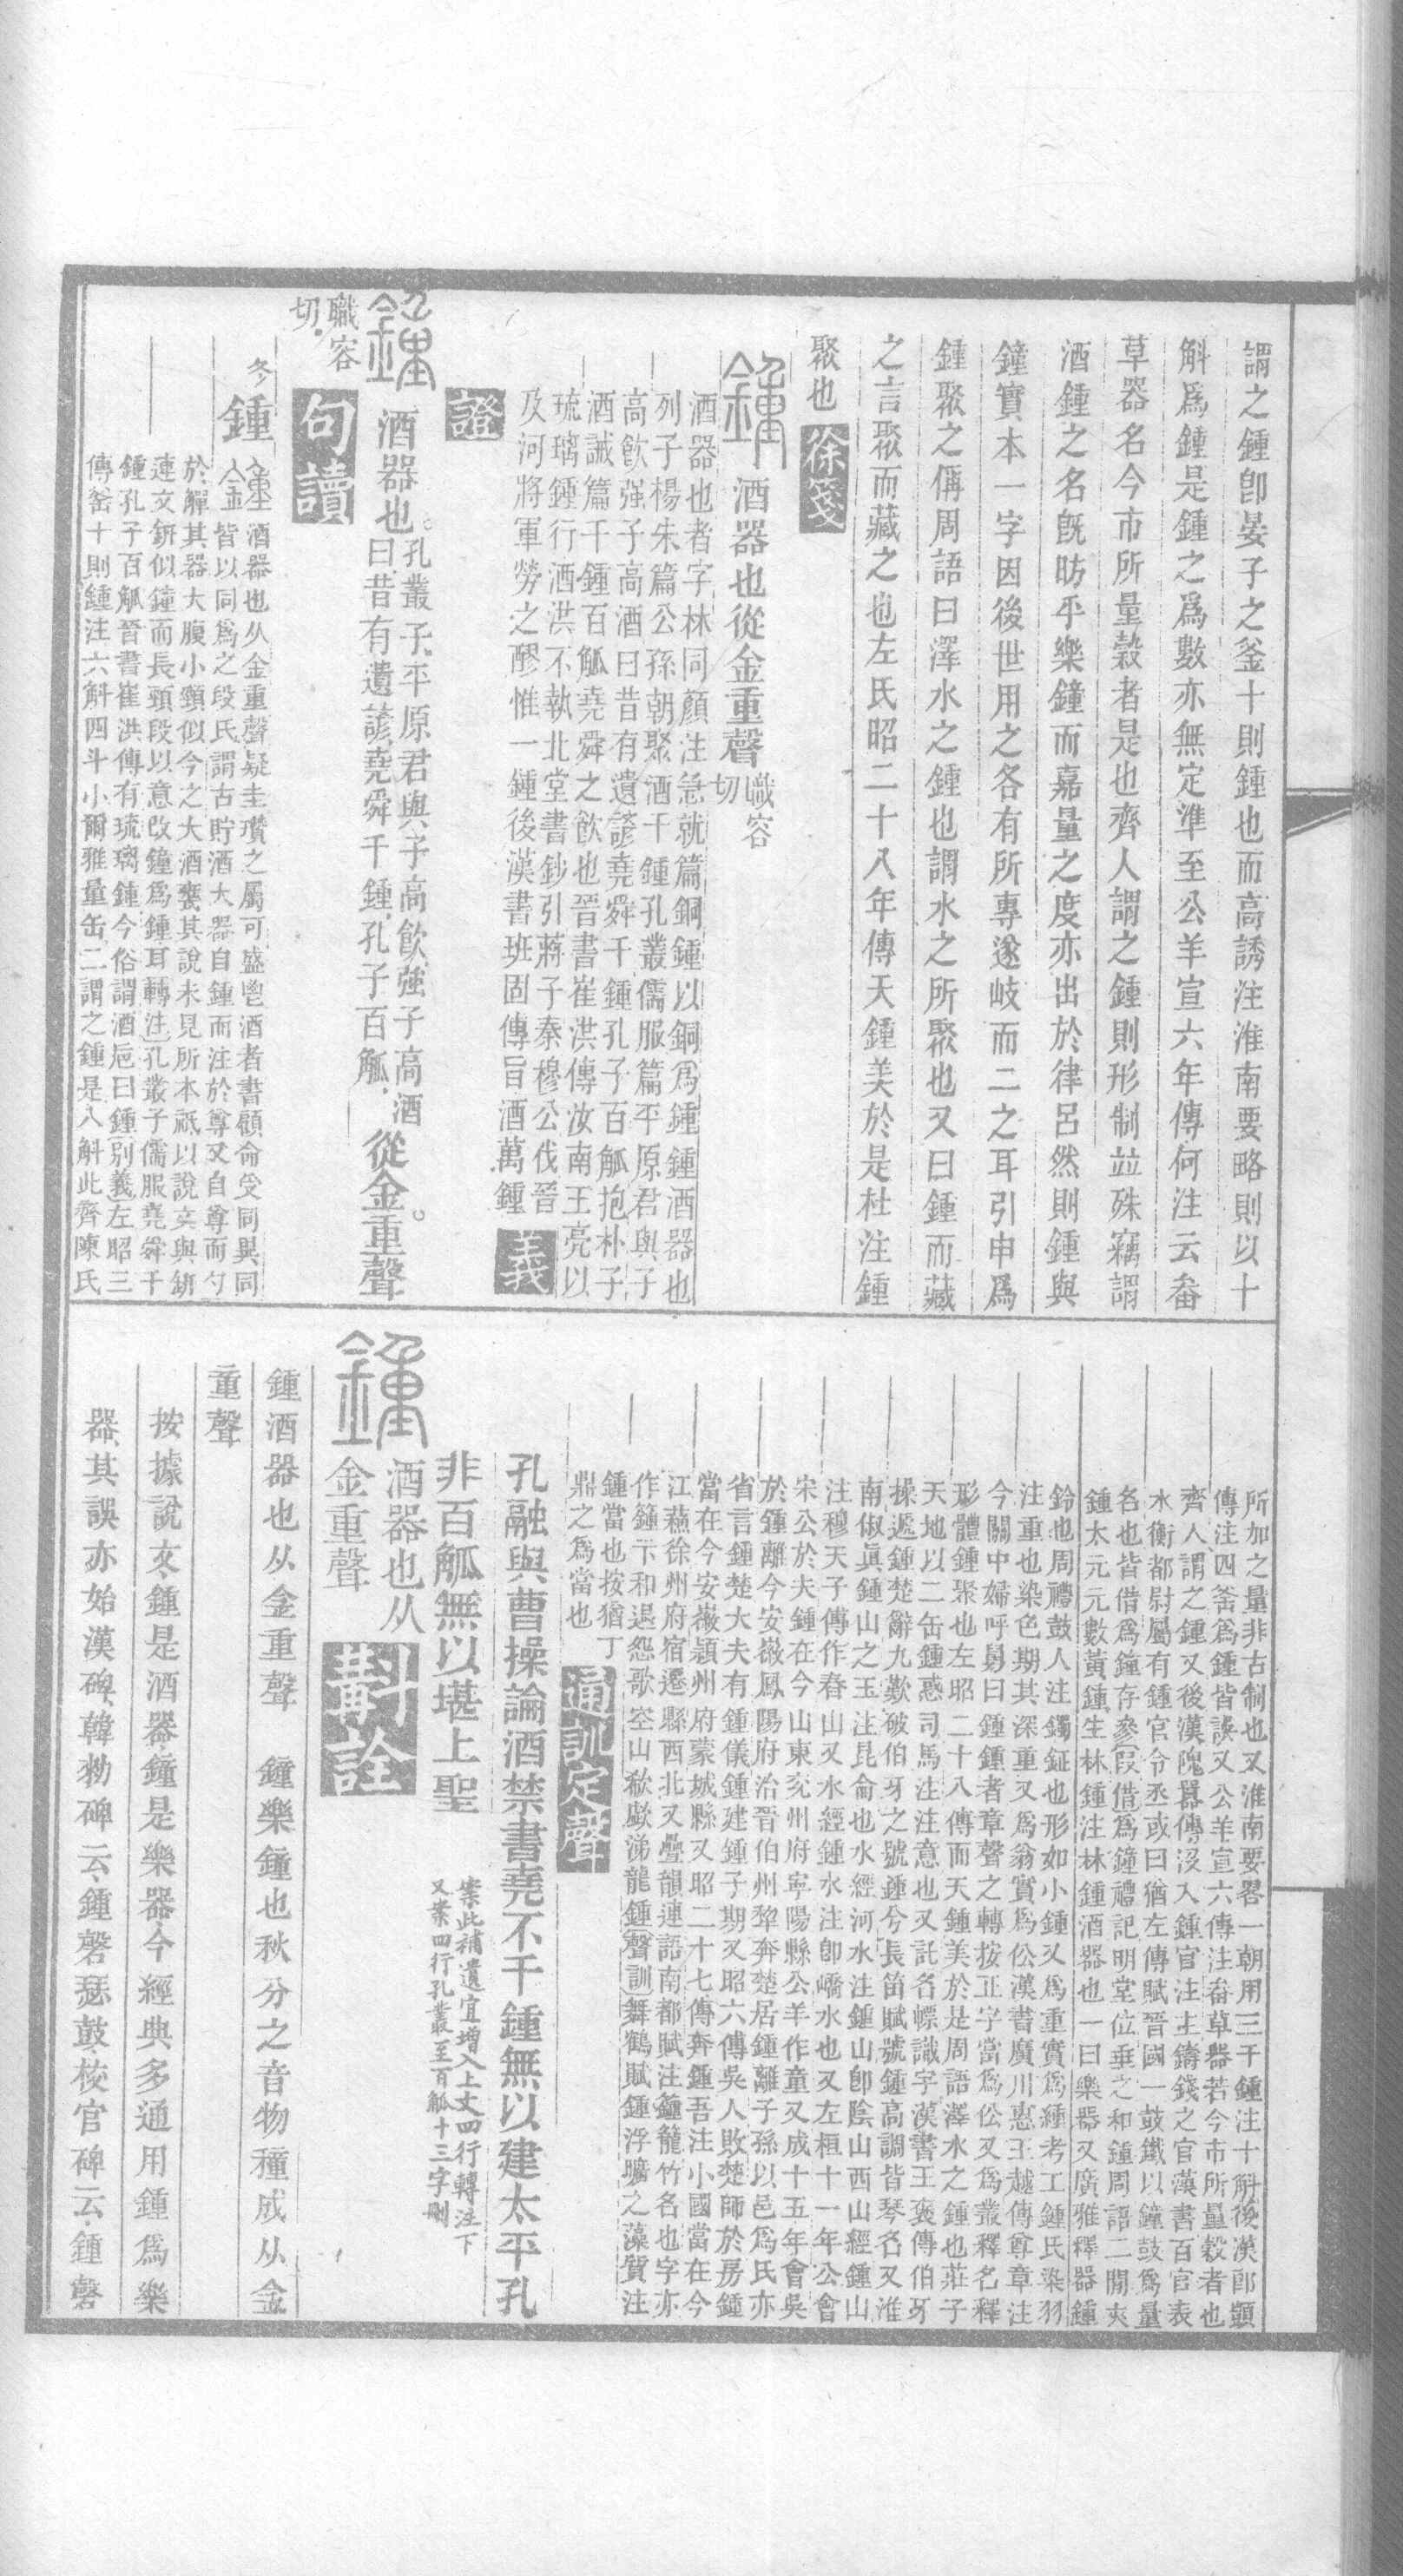 謂之鍾卽晏子之釜十則鍾也而高誘注淮南要略則以十
斛爲鍾是鍾之爲數亦無定準至公羊宣六年傳何注云畚
草器名今市所量穀者是也齊人謂之鍾則形制竝殊竊謂
酒鍾之名旣昉乎樂鐘而嘉量之度亦出於律呂然則鍾與
鐘實本一字因後世用之各有所專遂岐而二之耳引申爲
鍾聚之偁周語曰澤水之鍾也謂水之所聚也又曰鍾而藏
之言聚而藏之也左氏昭二十八年傳天鍾美於是杜注鍾
聚也 徐箋
鍾 酒器也從金重聲 職容切
酒器也者字林同顏注急就篇銅鍾以銅爲鍾鍾酒器也
列子楊朱篇公孫朝聚酒千鍾孔叢儒服篇平原君與子
高飮强子高酒曰昔有遺諺堯舜千鍾孔子百觚抱朴子
酒誡篇千鍾百觚堯舜之飮也晉書崔洪傳汝南王亮以
琉璃鍾行酒洪不執北堂書鈔引蔣子秦穆公伐晉
及河將軍勞之醪惟一鍾後漢書班固傳旨酒萬鍾 義
證
鍾 酒器也 孔叢子平原君與子高飮強子高酒
曰昔有遺諺堯舜千鍾孔子百觚 從金重聲
職容
切
句讀
冬 鍾 酒器也从金重聲疑圭瓚之屬可盛鬯酒者書顧命受同異同
皆以同爲之段氏謂古貯酒大器自鍾而注於尊又自尊而勺
於觶其器大腹小頸似今之大酒甕其說未見所本祇以說文與鈃
連文鈃似鐘而長頸段以意改鐘爲鍾耳轉注孔叢子儒服堯舜千
鍾孔子百觚晉書崔洪傳有琉璃鍾今俗謂酒巵曰鍾別義左昭三
傳釜十則鍾注六斛四斗小爾雅量缶二謂之鍾是八斛此齊陳氏
所加之量非古制也又淮南要畧一朝用三千鍾注十斛後漢郎顗
傳注四釜爲鍾皆誤又公羊宣六傳注畚草器若今市所量穀者也
齊人謂之鍾又後漢隗囂傳沒入鍾官注主鑄錢之官漢書百官表
水衡都尉屬有鍾官令丞或曰猶左傳賦晉國一鼓鐵以鐘鼓爲量
名也皆借爲鐘存參叚借爲鐘禮記明堂位垂之和鍾周語二閒夾
鍾太元元數黃鍾生林鍾注林鍾酒器也一曰樂器又廣雅釋器鍾
鈴也周禮鼓人注鐲鉦也形如小鍾又爲重實爲緟考工鍾氏染羽
注重也染色期其深重又爲翁實爲伀漢書廣川惠王越傳尊章注
今關中婦呼舅曰鍾鍾者章聲之轉按正字當爲伀又爲叢釋名釋
形體鍾聚也左昭二十八傳而天鍾美於是周語澤水之鍾也莊子
天地以二缶鍾惑司馬注注意也又託名幖識字漢書王襃傳伯牙
操遞鍾楚辭九歎破伯牙之號鍾兮長笛賦號鍾高調皆琴名又淮
南俶眞鍾山之玉注昆侖也水經河水注鍾山卽陰山西山經鍾山
注穆天子傳作舂山又水經鍾水注卽嶠水也又左桓十一年公會
宋公於夫鍾在今山東兗州府寧陽縣公羊作童又成十五年會吳
於鍾離今安徽鳳陽府治晉伯州犂奔楚居鍾離子孫以邑爲氏亦
省言鍾楚大夫有鍾儀鍾建鍾子期又昭六傳吳人敗楚師於房鍾
當在今安徽潁州府蒙城縣又昭二十七傳奔鍾吾注小國當在今
江蘇徐州府宿遷縣西北又疊韻連語南都賦注籦籠竹名也字亦
作籦卞和退怨歌空山欷歔涕龍鍾聲訓舞鶴賦鍾浮曠之藻質注
鍾當也按猶丁
鼎之爲當也 通訓定聲
孔融與曹操論酒禁書堯不千鍾無以建太平孔
非百觚無以堪上聖 案此補遺宜增入上文四行轉注下
又案四行孔叢至百觚十三字刪
鍾 酒器也从
金重聲 斠詮
鍾酒器也从金重聲 鐘樂鐘也秋分之音物穜成从金
重聲
按據說文鍾是酒器鐘是樂器今經典多通用鍾爲樂
器其誤亦始漢碑韓勑碑云鍾磬瑟鼓校官碑云鍾磬